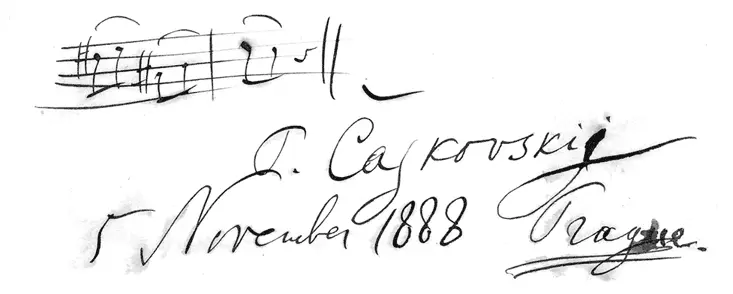 P. Čajkovskij
5 November 1888 Prague.